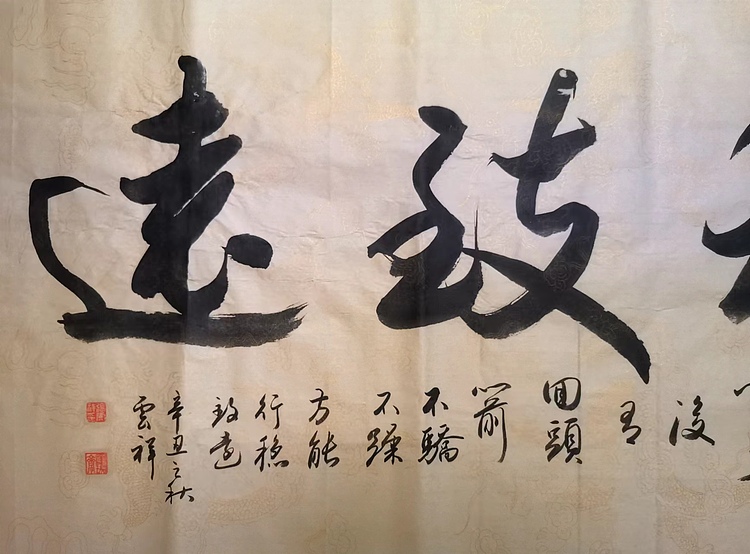 致遠
没
有
回頭
箭
不驕
不躁
方能
行稳
致遠
辛丑之秋
雲祥